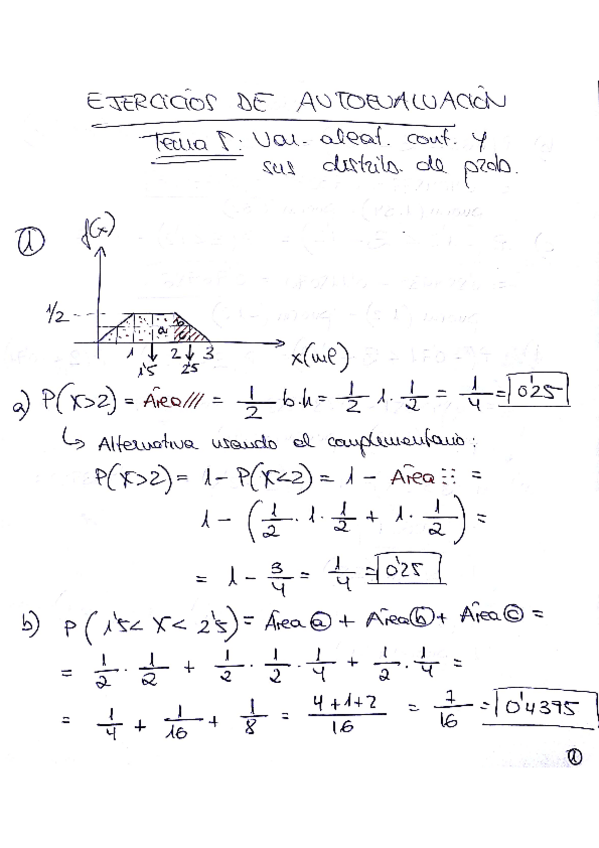 EJERCICIOS DE AUTOEVALUACIÓN
Tema 5: Var. aleat. cont. y
sus distrib. de prob.
① f(x)
1/2
a b c
1 2 3 x(ml)
1'5 2'5
a) P(X>2) = Área/// = 1/2 b.h = 1/2 · 1 · 1/2 = 1/4 = 0'25
↳ Alternativa usando el complementario:
P(X>2) = 1 - P(X<2) = 1 - Área ⁝⁝ =
1 - (1/2 · 1 · 1/2 + 1 · 1/2) =
= 1 - 3/4 = 1/4 = 0'25
b) P(1'5 < X < 2'5) = Área ⓐ + Área ⓑ + Área ⓒ =
= 1/2 · 1/2 + 1/2 · 1/2 · 1/4 + 1/2 · 1/4 =
= 1/4 + 1/16 + 1/8 = 4+1+2/16 = 7/16 = 0'4395
①